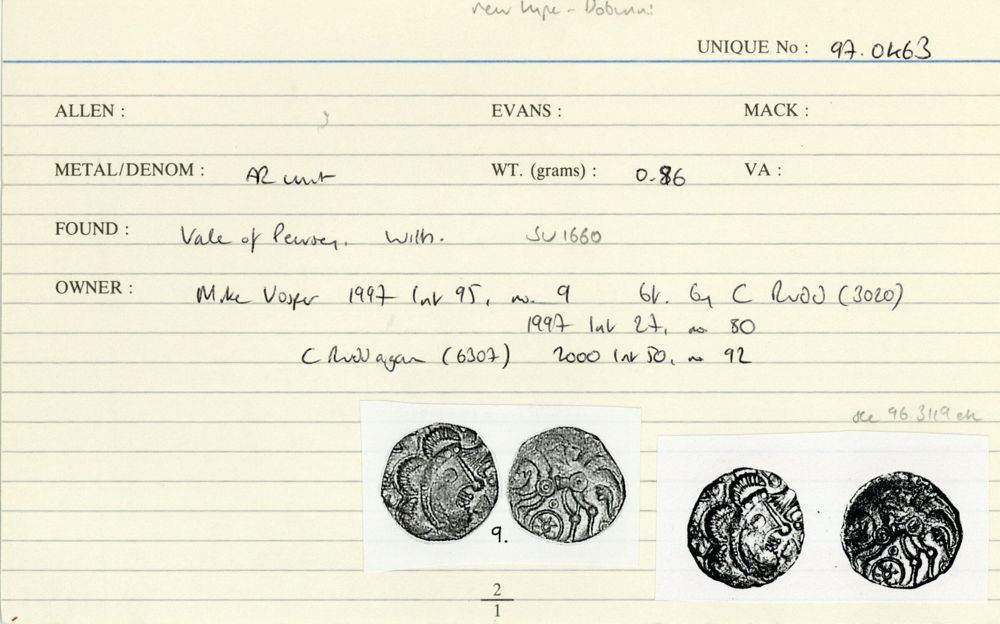 new type - Dobunni
UNIQUE No : 97.0463
ALLEN : EVANS : MACK :
METAL/DENOM : AR unit WT. (grams) : 0.86 VA :
FOUND : Vale of Pewsey, Wilts. SU 1660
OWNER : Mike Vosper 1997 list 95, no. 9 bt. by C Rudd (3020)
1997 list 27, no. 80
C Rudd again (6307) 2000 list 50, no 92
see 96.3119 etc
9.
2
1